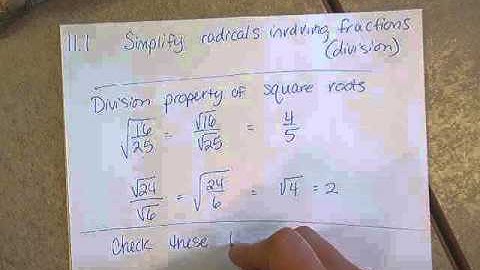 11.1 Simplify radicals involving fractions
(division)
Division property of square roots
√(16/25) = √16/√25 = 4/5
√24/√6 = √(24/6) = √4 = 2
Check these